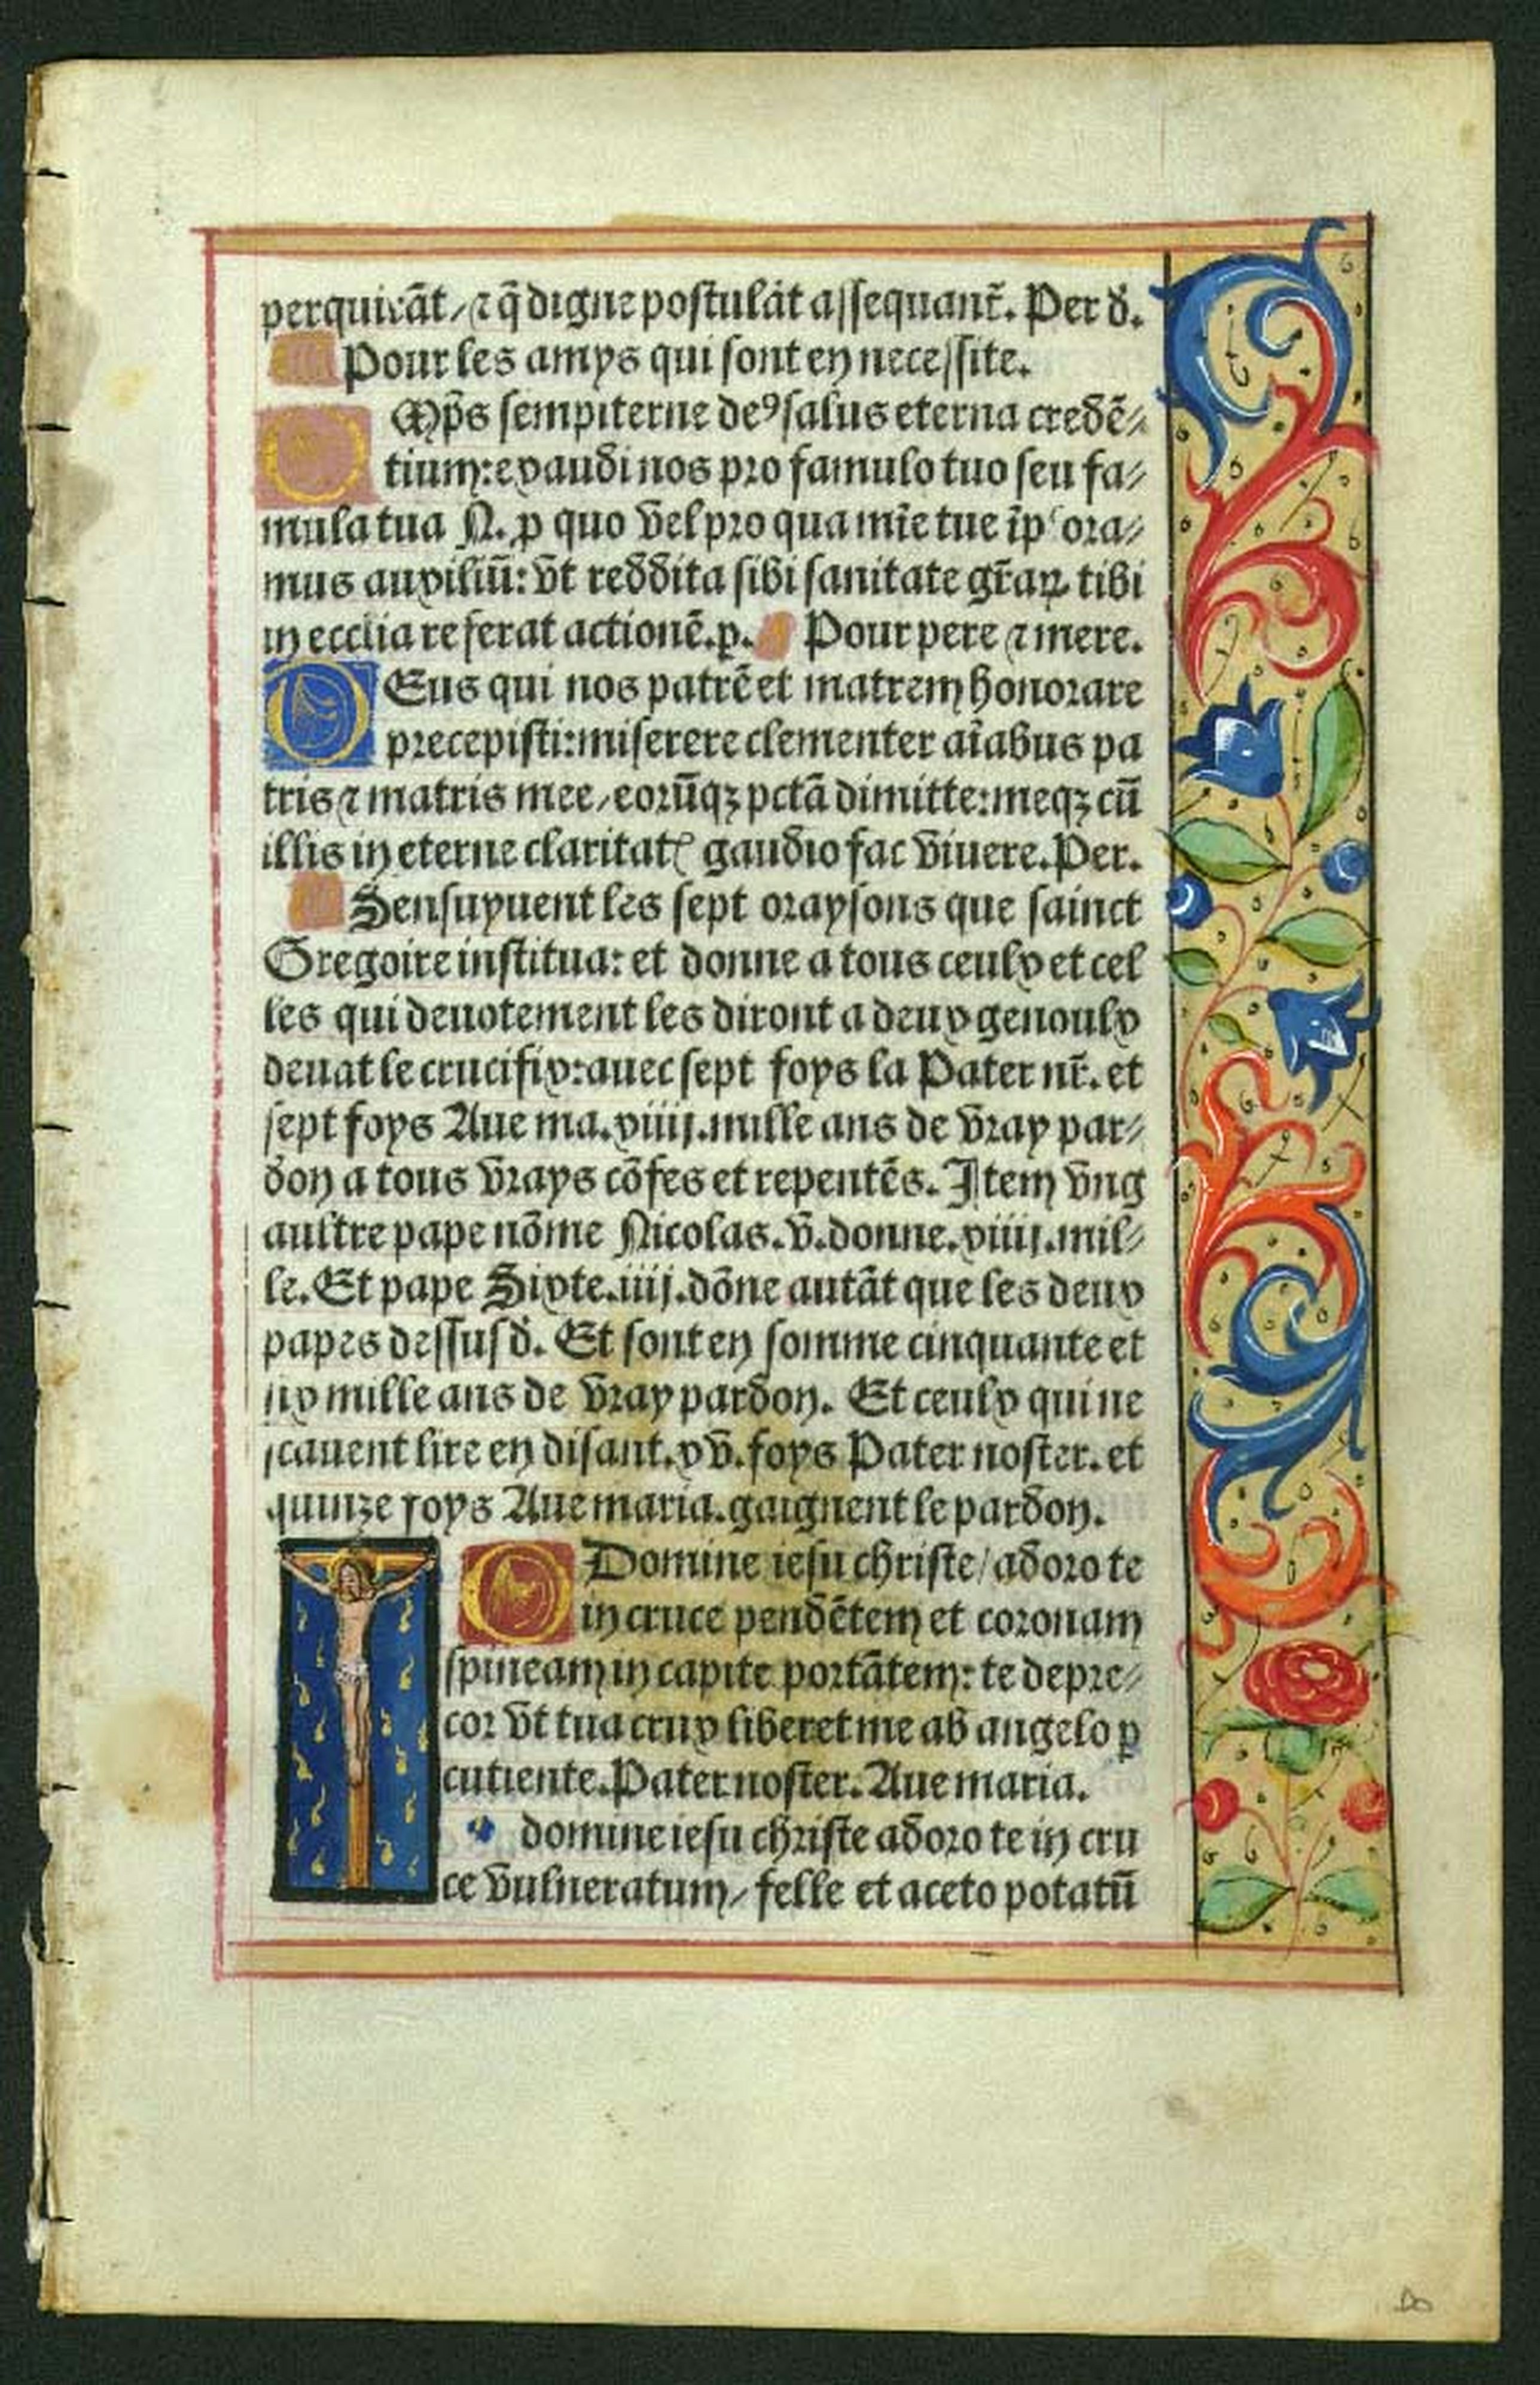 perquirāt / ⁊ q̄ digne postulāt assequant̄. Per d̄.
Pour les amys qui sont en necessite.
O Mp̄s sempiterne deꝰ salus eterna credē⸗
tium: exaudi nos pro famulo tuo seu fa⸗
mula tua N. ꝓ quo vel pro qua mīe tue īp̄ ora⸗
mus auxiliū: vt reddita sibi sanitate gr̄aꝝ tibi
in ecclīa referat actionē. p. Pour pere ⁊ mere.
D Eus qui nos patrē et matrem honorare
precepisti: miserere clementer aīabus pa
tris ⁊ matris mee / eorūqꝫ pctā dimitte: meqꝫ cū
illis in eterne claritatꝭ gaudio fac viuere. Per.
Sensuyuent les sept oraysons que sainct
Gregoire institua: et donne a tous ceulx et cel
les qui deuotement les diront a deux genoulx
deuāt le crucifix: auec sept foys la Pater nr̄. et
sept foys Aue ma. xiiij. mille ans de vray par⸗
don a tous vrays cōfes et repentēs. Item vng
aultre pape nōme Nicolas. v. donne. xiiij. mil⸗
le. Et pape Sixte. iiij. dōne autāt que les deux
papes dessusd̄. Et sont en somme cinquante et
six mille ans de vray pardon. Et ceulx qui ne
scauent lire en disant. xv. foys Pater noster. et
quinze foys Aue maria. gaignent le pardon.
O Domine iesu christe / adoro te
in cruce pendētem et coronam
spineam in capite portātem: te depre⸗
cor vt tua crux liberet me ab angelo ꝑ
cutiente. Pater noster. Aue maria.
domine iesu christe adoro te in cru
ce vulneratum / felle et aceto potatū